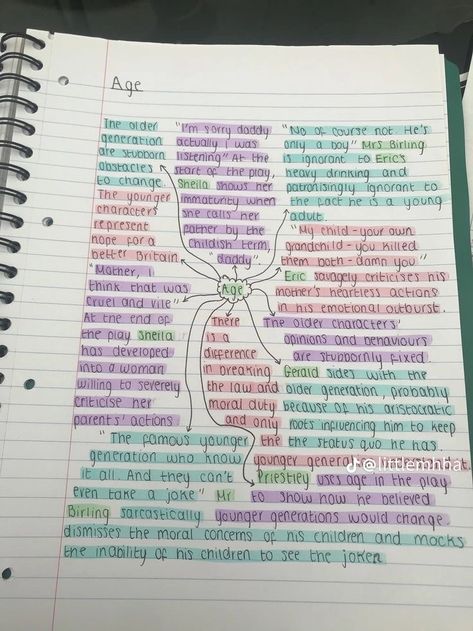 Age
The older
generation
are stubborn
obstacles
to change.
The younger
characters
represent
hope for a
better Britain
"I'm sorry daddy
actually I was
listening" At the
start of the play,
Sheila shows her
immaturity when
she calls her
father by the
childish term,
"daddy".
"No of course not He's
only a boy" Mrs Birling
is ignorant to Eric's
heavy drinking and
patronisingly ignorant to
the fact he is a young
adult.
"My child - your own
grandchild - you killed
them both - damn you"
Eric savagely criticises his
mother's heartless actions
in his emotional outburst.
Age
"Mother, I
think that was
cruel and vile"
At the end of
the play Sheila
has developed
into a woman
willing to severely
criticise her
parents' actions.
There
is a
difference
in breaking
the law and
moral duty
and only
the
younger
The older characters'
opinions and behaviours
are stubbornly fixed.
Gerald sides with the
older generation, probably
because of his aristocratic
roots influencing him to keep
the status quo he has
Priestley uses age in the play
to show how he believed
younger generations would change.
"The famous younger
generation who know
it all And they can't
even take a joke" Mr
Birling sarcastically
dismisses the moral concerns of his children and mocks
the inability of his children to see the joke